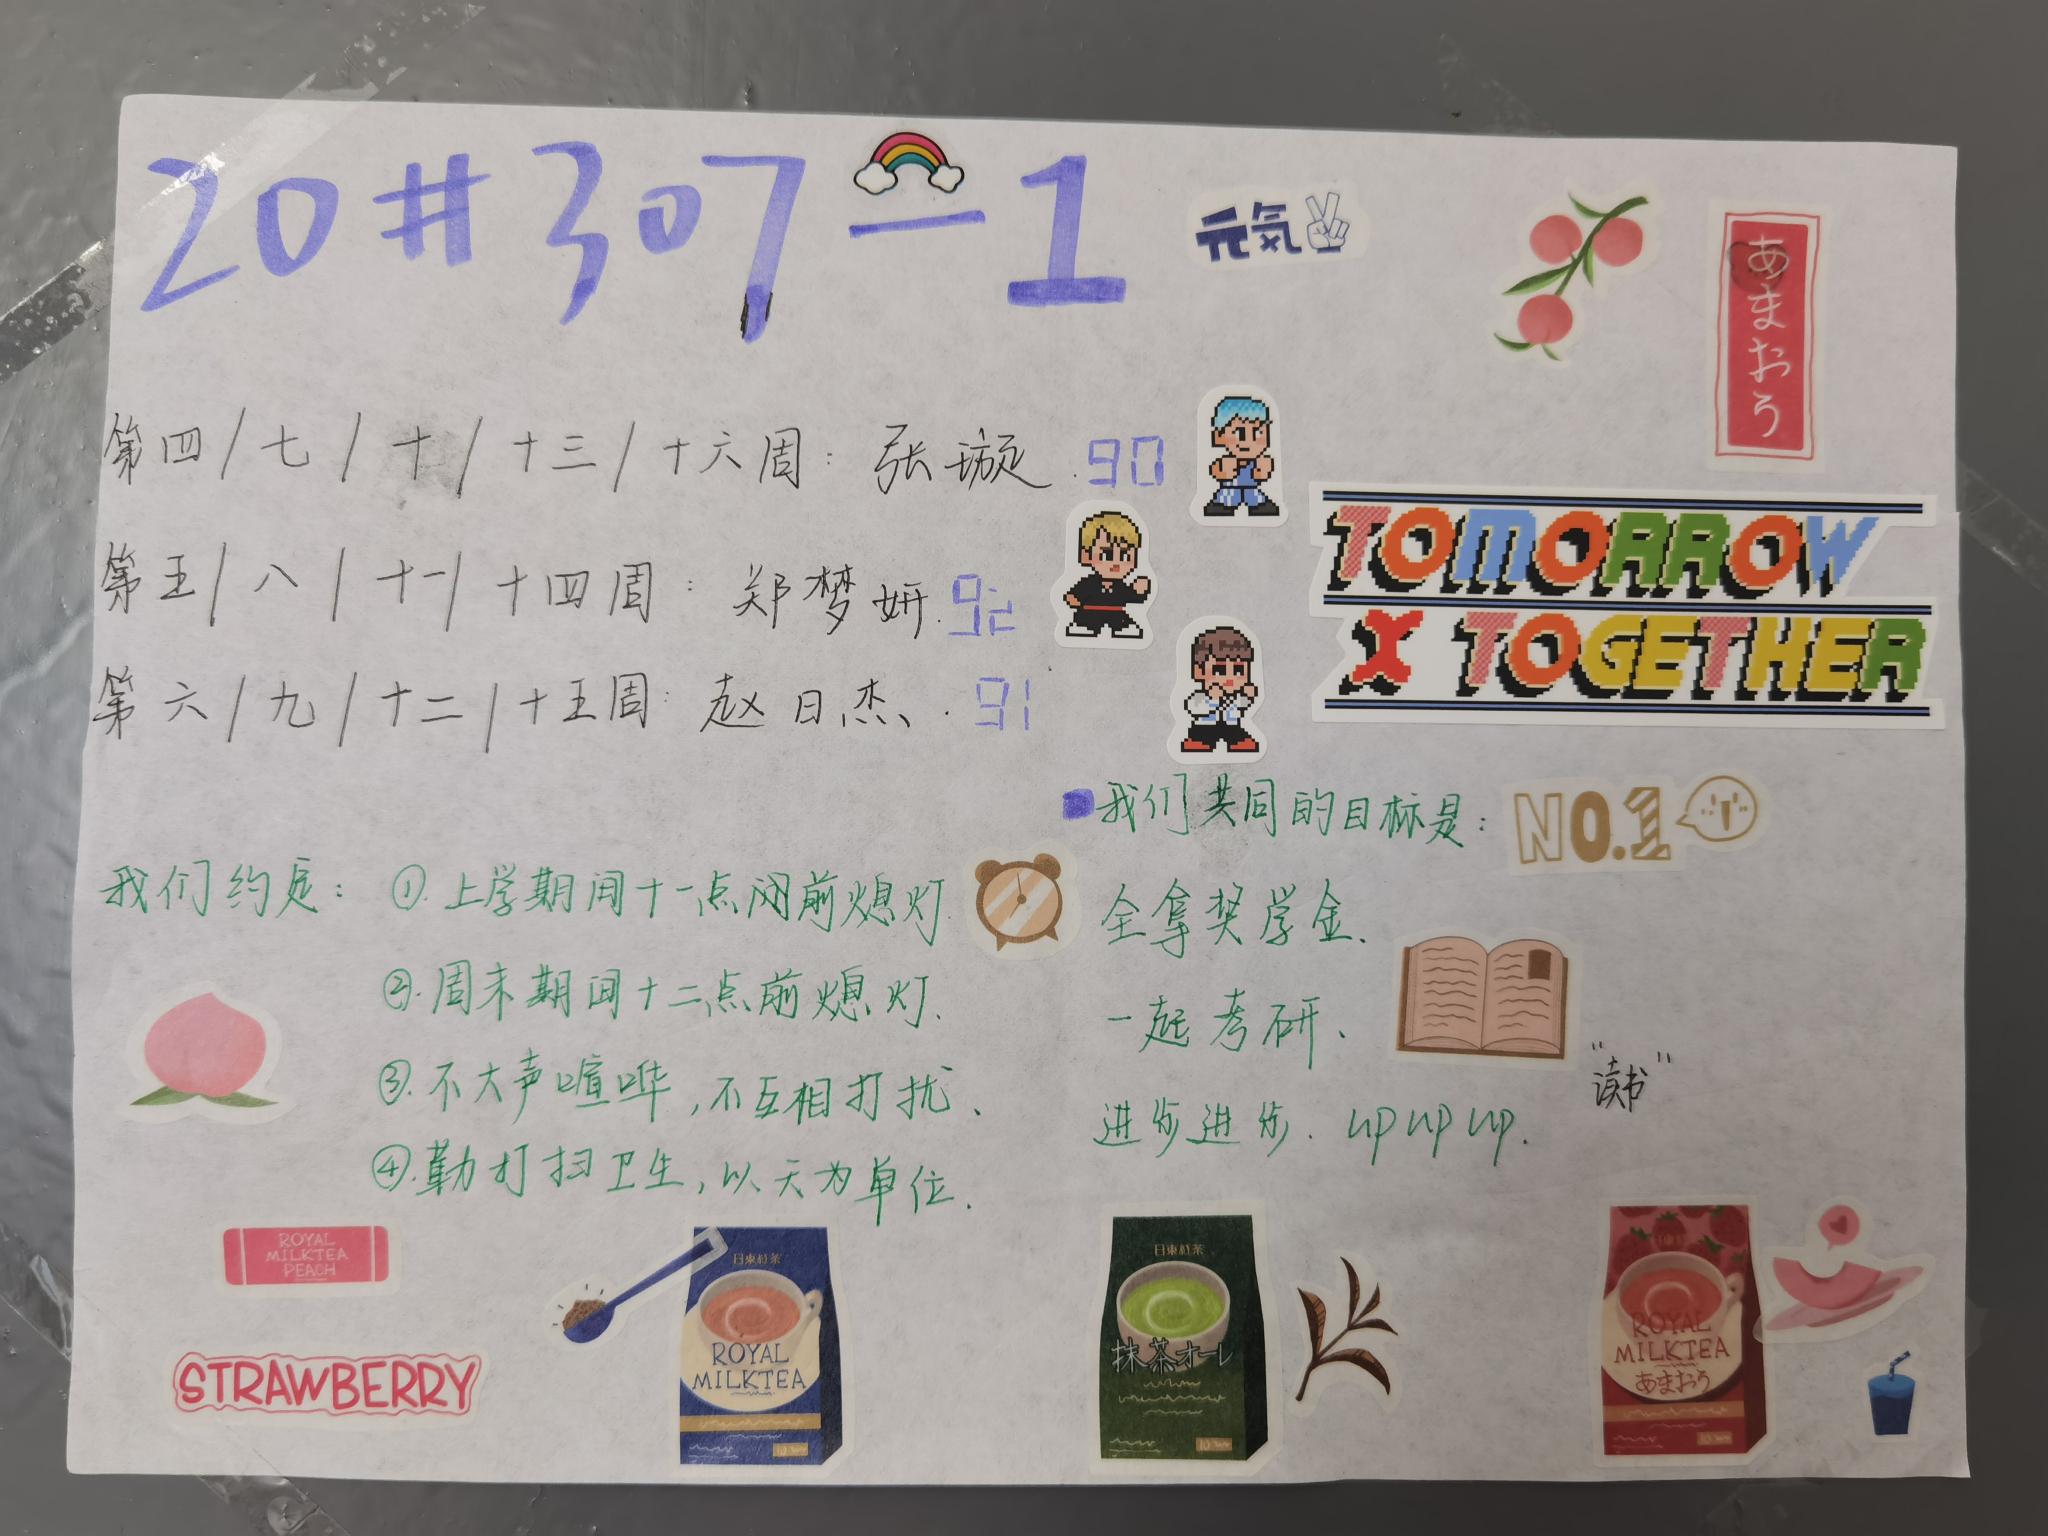 20#307-1
元気
あまおう
第四/七/十/十三/十六周：张璇.90
TOMORROW
X TOGETHER
第五/八/十一/十四周：郑梦妍.92
第六/九/十二/十五周：赵日杰.91
我们共同的目标是：
NO.1
全拿奖学金.
一起考研.
"读书"
进步进步.up up up.
我们约定：①.上学期间十一点闭前熄灯.
②.周末期间十二点前熄灯.
③.不大声喧哗,不互相打扰.
④.勤打扫卫生,以天为单位.
ROYAL
MILKTEA
PEACH
STRAWBERRY
日東紅茶
ROYAL
MILKTEA
日東紅茶
抹茶オーレ
ROYAL
MILKTEA
あまおう